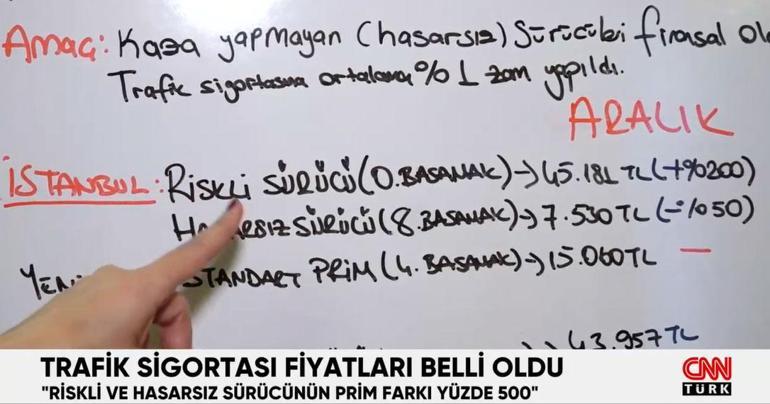 AMAÇ: Kaza yapmayan (hasarsız) sürücüleri finansal
Trafik sigortasına ortalama % 1 zam yapıldı.
ARALIK
İSTANBUL: RİSKLİ SÜRÜCÜ (0. BASAMAK) → 45.181 TL (+%200)
SÜRÜCÜ (8. BASAMAK) → 7.530 TL (-%50)
STANDART PRİM (4. BASAMAK) → 15.060 TL —
43.957 TL
TRAFİK SİGORTASI FİYATLARI BELLİ OLDU
"RİSKLİ VE HASARSIZ SÜRÜCÜNÜN PRİM FARKI YÜZDE 500"
CNN
TÜRK